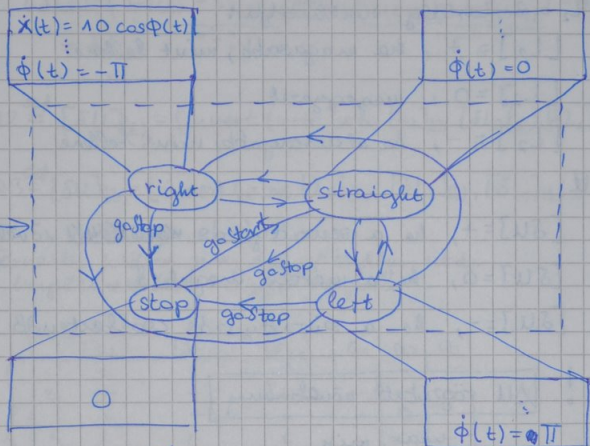 ẋ(t) = 10 cosϕ(t)
⋮
ϕ̇(t) = -π
⋮
ϕ̇(t) = 0
right
straight
goStop
goStart
goStop
stop
goStop
left
0
⋮
ϕ̇(t) = π